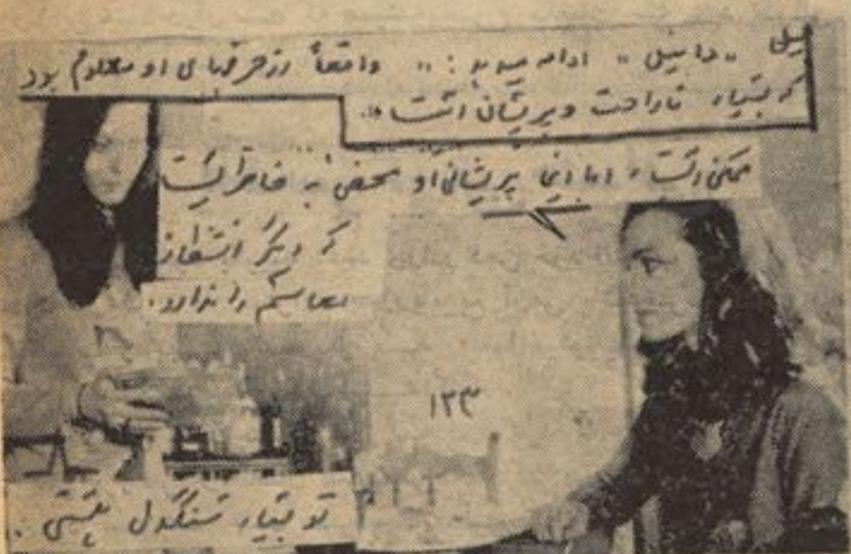 «دانیل» ادامه میدهد: «واقعاً از حرفهای او معلوم بود
که بسیار ناراحت و پریشان است».
ممکن است، اما این پریشانی او محض به خاطر اینست
که دیگر انتظار
را ندارد.
۱۲۳
تو بسیار سنگدل هستی.